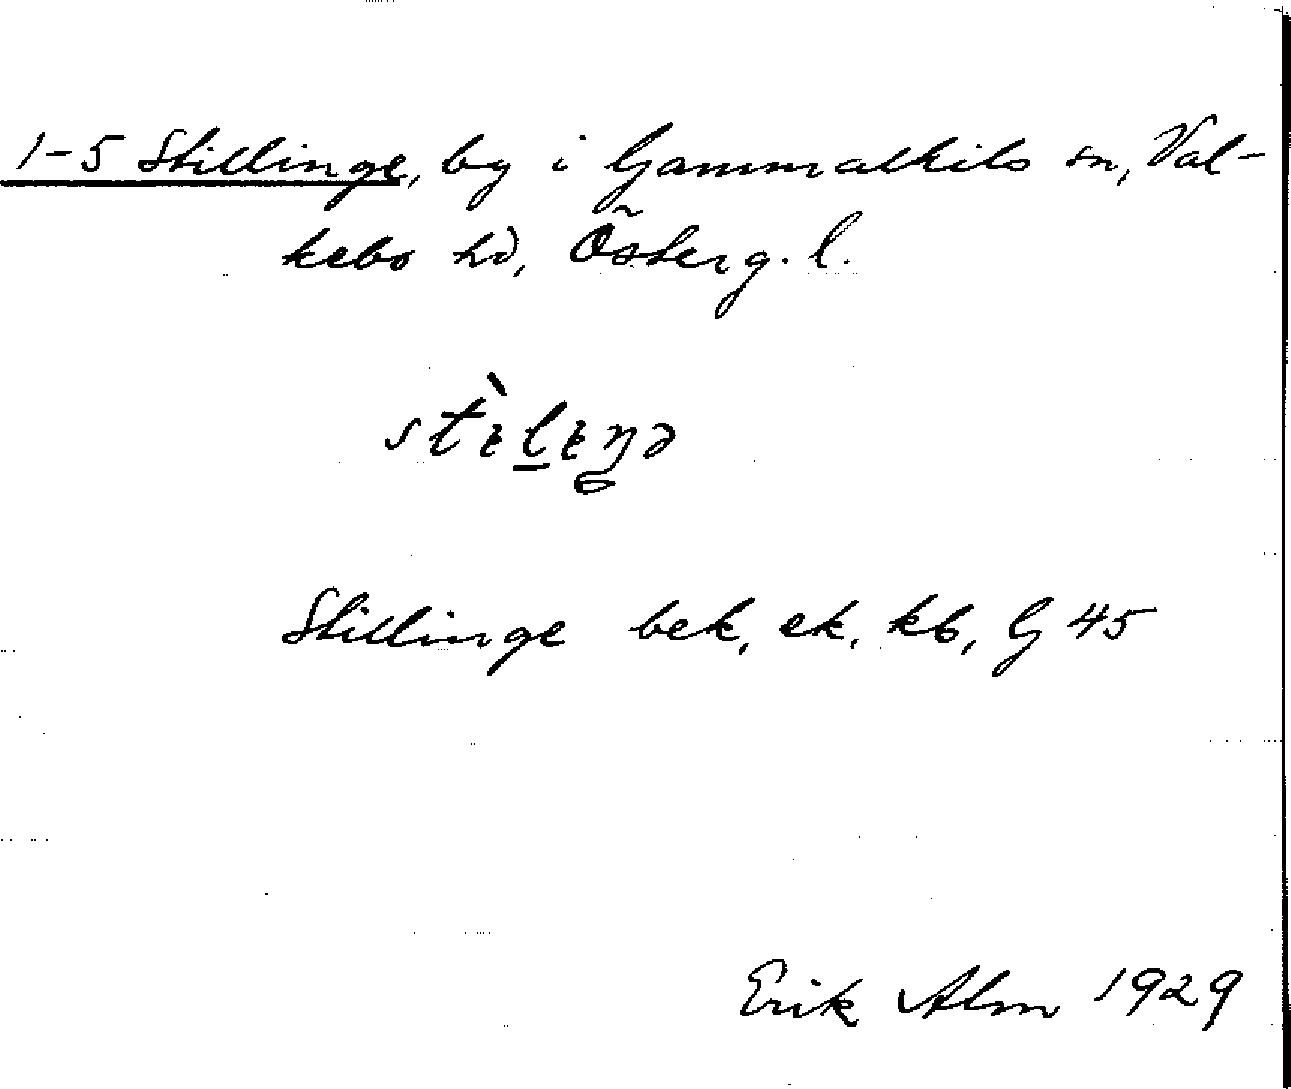 1-5 Stillinge, by i Gammalkils sn, Val-
kebo hd, Österg. l.
Stillinge bek, ek, kb, G 45
Erik Alm 1929